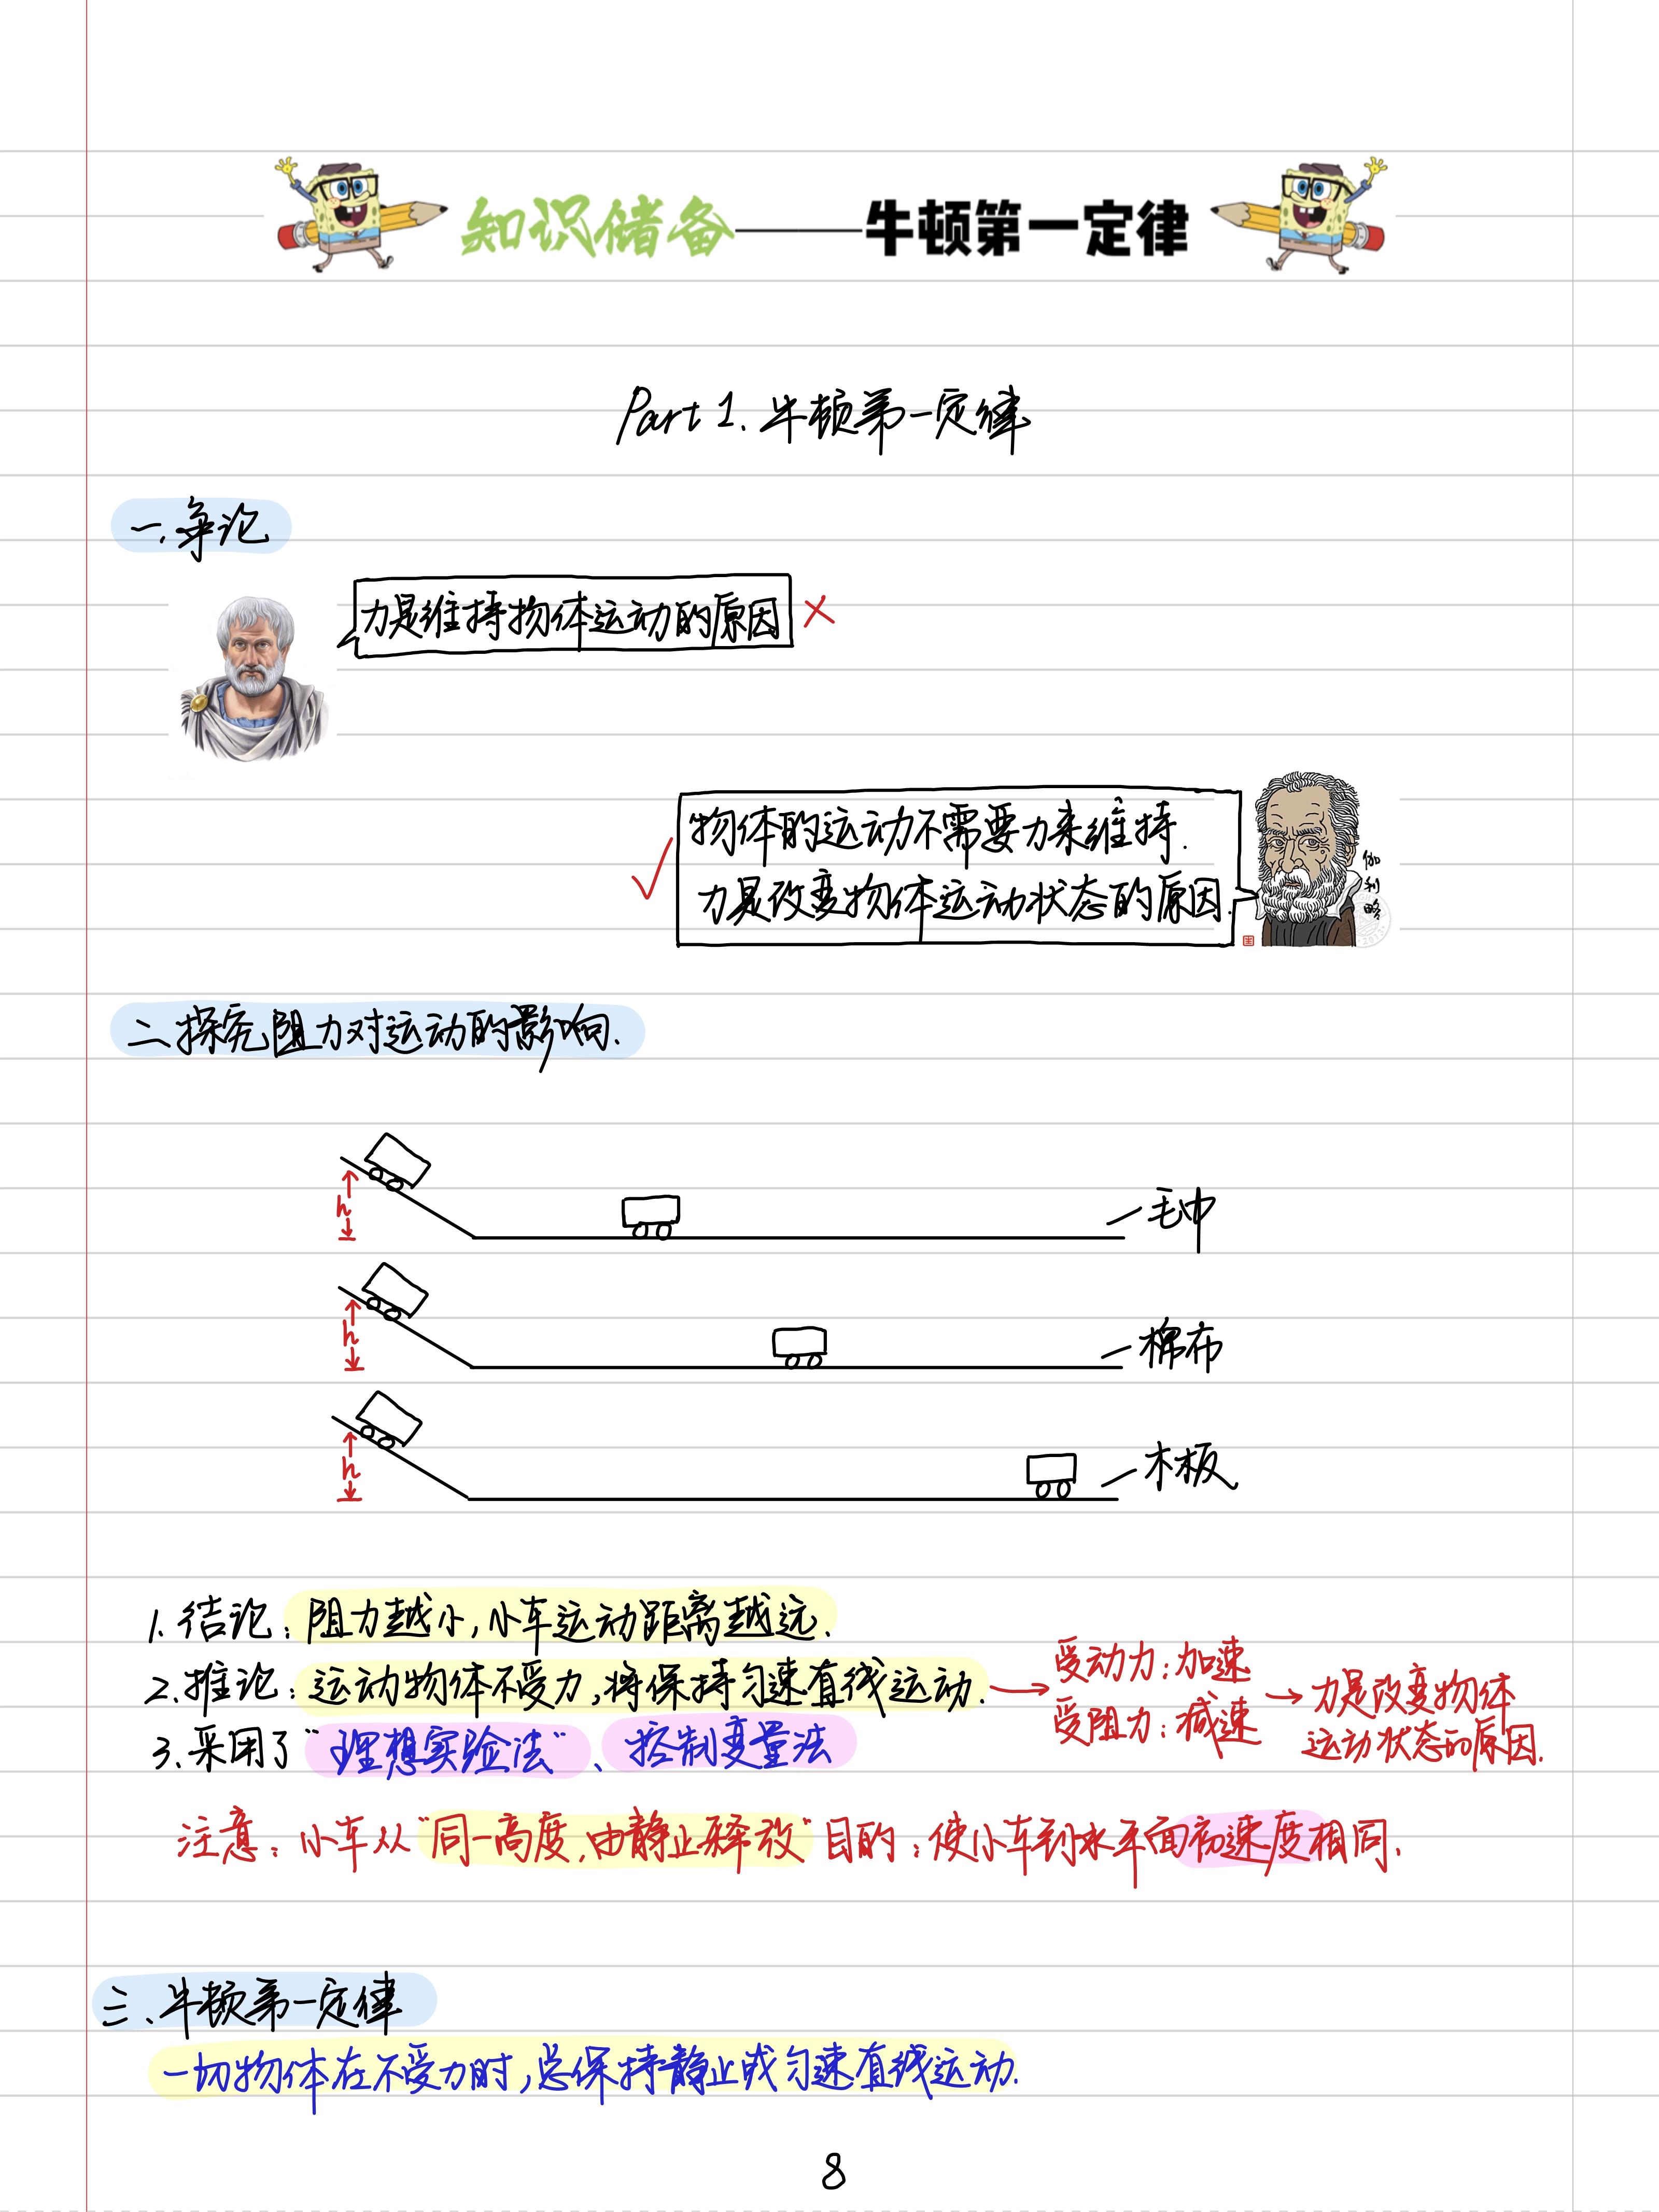 知识储备——牛顿第一定律
Part 1. 牛顿第一定律
一. 争论
力是维持物体运动的原因 ×
物体的运动不需要力来维持.
✓ 力是改变物体运动状态的原因.
伽利略
二、探究阻力对运动的影响.
h
毛巾
h
棉布
h
木板
1. 结论: 阻力越小, 小车运动距离越远.
2. 推论: 运动物体不受力, 将保持匀速直线运动. → 受动力: 加速
受阻力: 减速 → 力是改变物体
运动状态的原因.
3. 采用了"理想实验法"、控制变量法
注意: 小车从"同一高度, 由静止释放" 目的: 使小车到水平面初速度相同.
三、牛顿第一定律
一切物体在不受力时, 总保持静止或匀速直线运动.
8